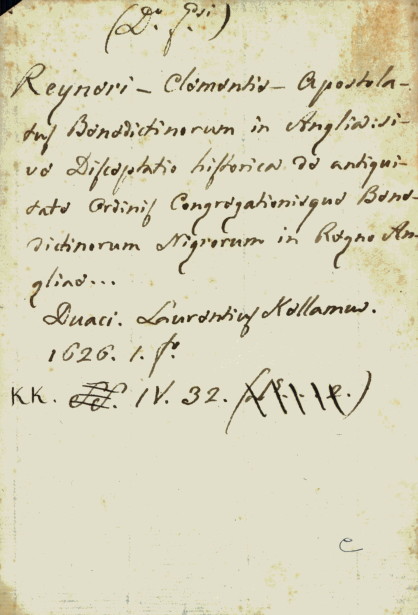 (Dn. Gsi.)
Reyneri - Clementis - Apostola-
tus Benedictinorum in Anglia: si-
ve Disceptatio historica de antiqui-
tate Ordinis Congregationisque Bene-
dictinorum Nigrorum in Regno An-
gliae...
Duaci. Laurentius Kellamus.
1626. 1. fo.
KK. IV. 32.
e